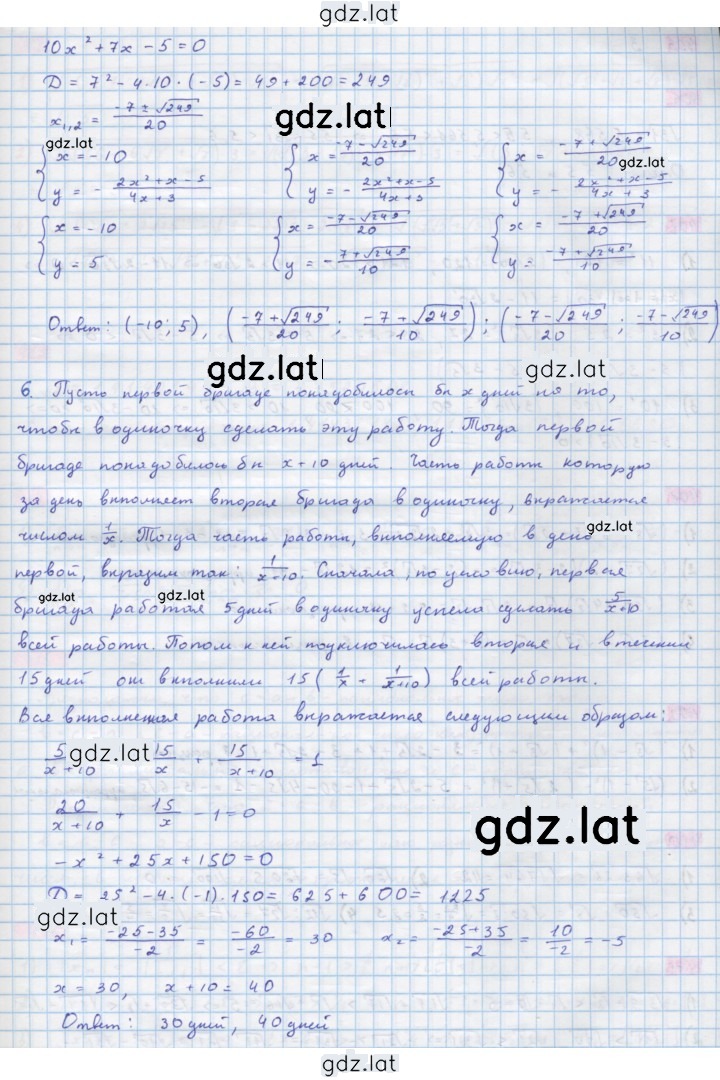 gdz.lat
10x² + 7x − 5 = 0
D = 7² − 4·10·(−5) = 49 + 200 = 249
x₁,₂ = (−7 ± √249)/20
gdz.lat
gdz.lat
{ x = −10 { x = (−7 − √249)/20 { x = (−7 + √249)/20
gdz.lat
y = − (2x² + x − 5)/(4x + 3) y = − (2x² + x − 5)/(4x + 3) y = − (2x² + x − 5)/(4x + 3)
{ x = −10 { x = (−7 − √249)/20 { x = (−7 + √249)/20
y = 5 y = − (7 + √249)/10 y = (−7 + √249)/10
Ответ: (−10; 5), ((−7 + √249)/20; (−7 + √249)/10); ((−7 − √249)/20; (−7 − √249)/10)
gdz.lat
gdz.lat
6. Пусть первой бригаде понадобилось бы x дней на то,
чтобы в одиночку сделать эту работу. Тогда первой
бригаде понадобилось бы x + 10 дней. Часть работы которую
за день выполняет вторая бригада в одиночку, выражается
числом 1/x. Тогда часть работы, выполняемую в день
gdz.lat
первой, выразим так: 1/(x+10). Сначала, по условию, первая
gdz.lat
gdz.lat
бригада работая 5 дней в одиночку успела сделать 5/(x+10)
всей работы. Потом к ней подключилась вторая и в течении
15 дней они выполнили 15(1/x + 1/(x+10)) всей работы.
Вся выполненная работа выражается следующим образом:
gdz.lat
5/(x+10) 15/x + 15/(x+10) = 1
20/(x+10) + 15/x − 1 = 0
gdz.lat
−x² + 25x + 150 = 0
D = 25² − 4·(−1)·150 = 625 + 600 = 1225
gdz.lat
x₁ = (−25−35)/−2 = −60/−2 = 30 x₂ = (−25+35)/−2 = 10/−2 = −5
x = 30, x + 10 = 40
Ответ: 30 дней, 40 дней
gdz.lat